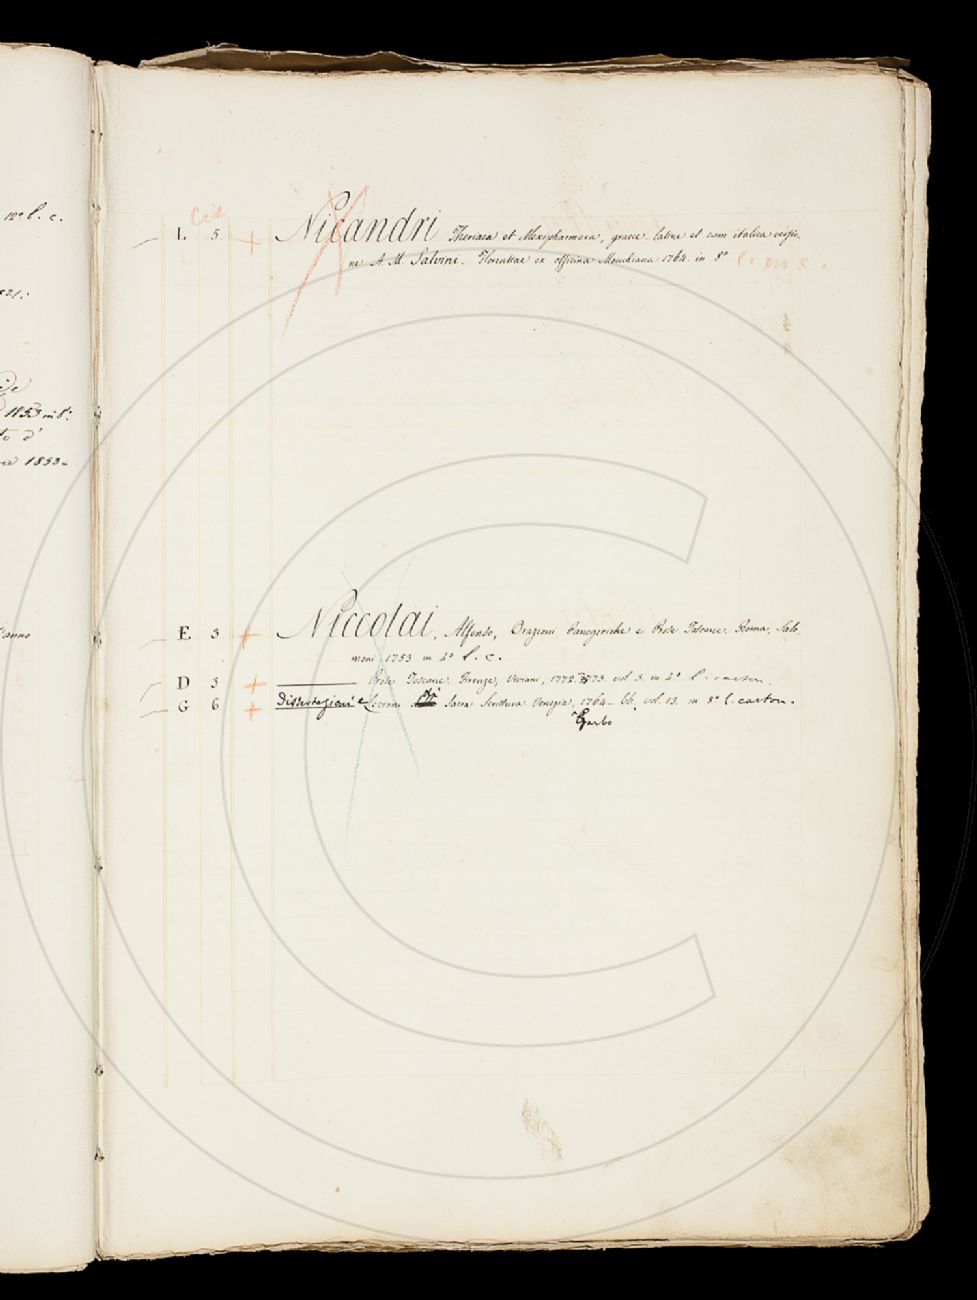 12° l. c.
821.
1853 in 8°.
to d'
1853.
anno
Cit
L 5 + Nicandri Theriaca et Alexipharmaca, graece latine et cum italica versio-
ne A. M. Salvini. Florentiae ex officina Mouckiana 1764. in 8°
E 3 + Niccolai, Alfonso, Orazioni Panegiriche e Prose Toscane. Roma, Salo-
moni 1753 in 4° l. c.
D 3 + ——— Prose Toscane. Firenze, Viviani, 1772. 73. vol 3. in 4° l. carton.
G 6 + Dissertazioni e Lezioni di Sacra Scrittura. Venezia, 1764-66. vol. 13. in 8° l. carton.
Zarbo